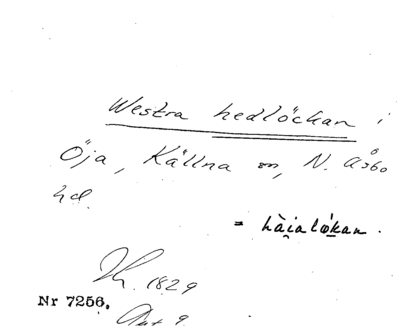 Westra hedlöckan i
Öja, Källna sn, N. Åsbo
hd.
= hài̯alo̱kan.
1829
Nr 7256.